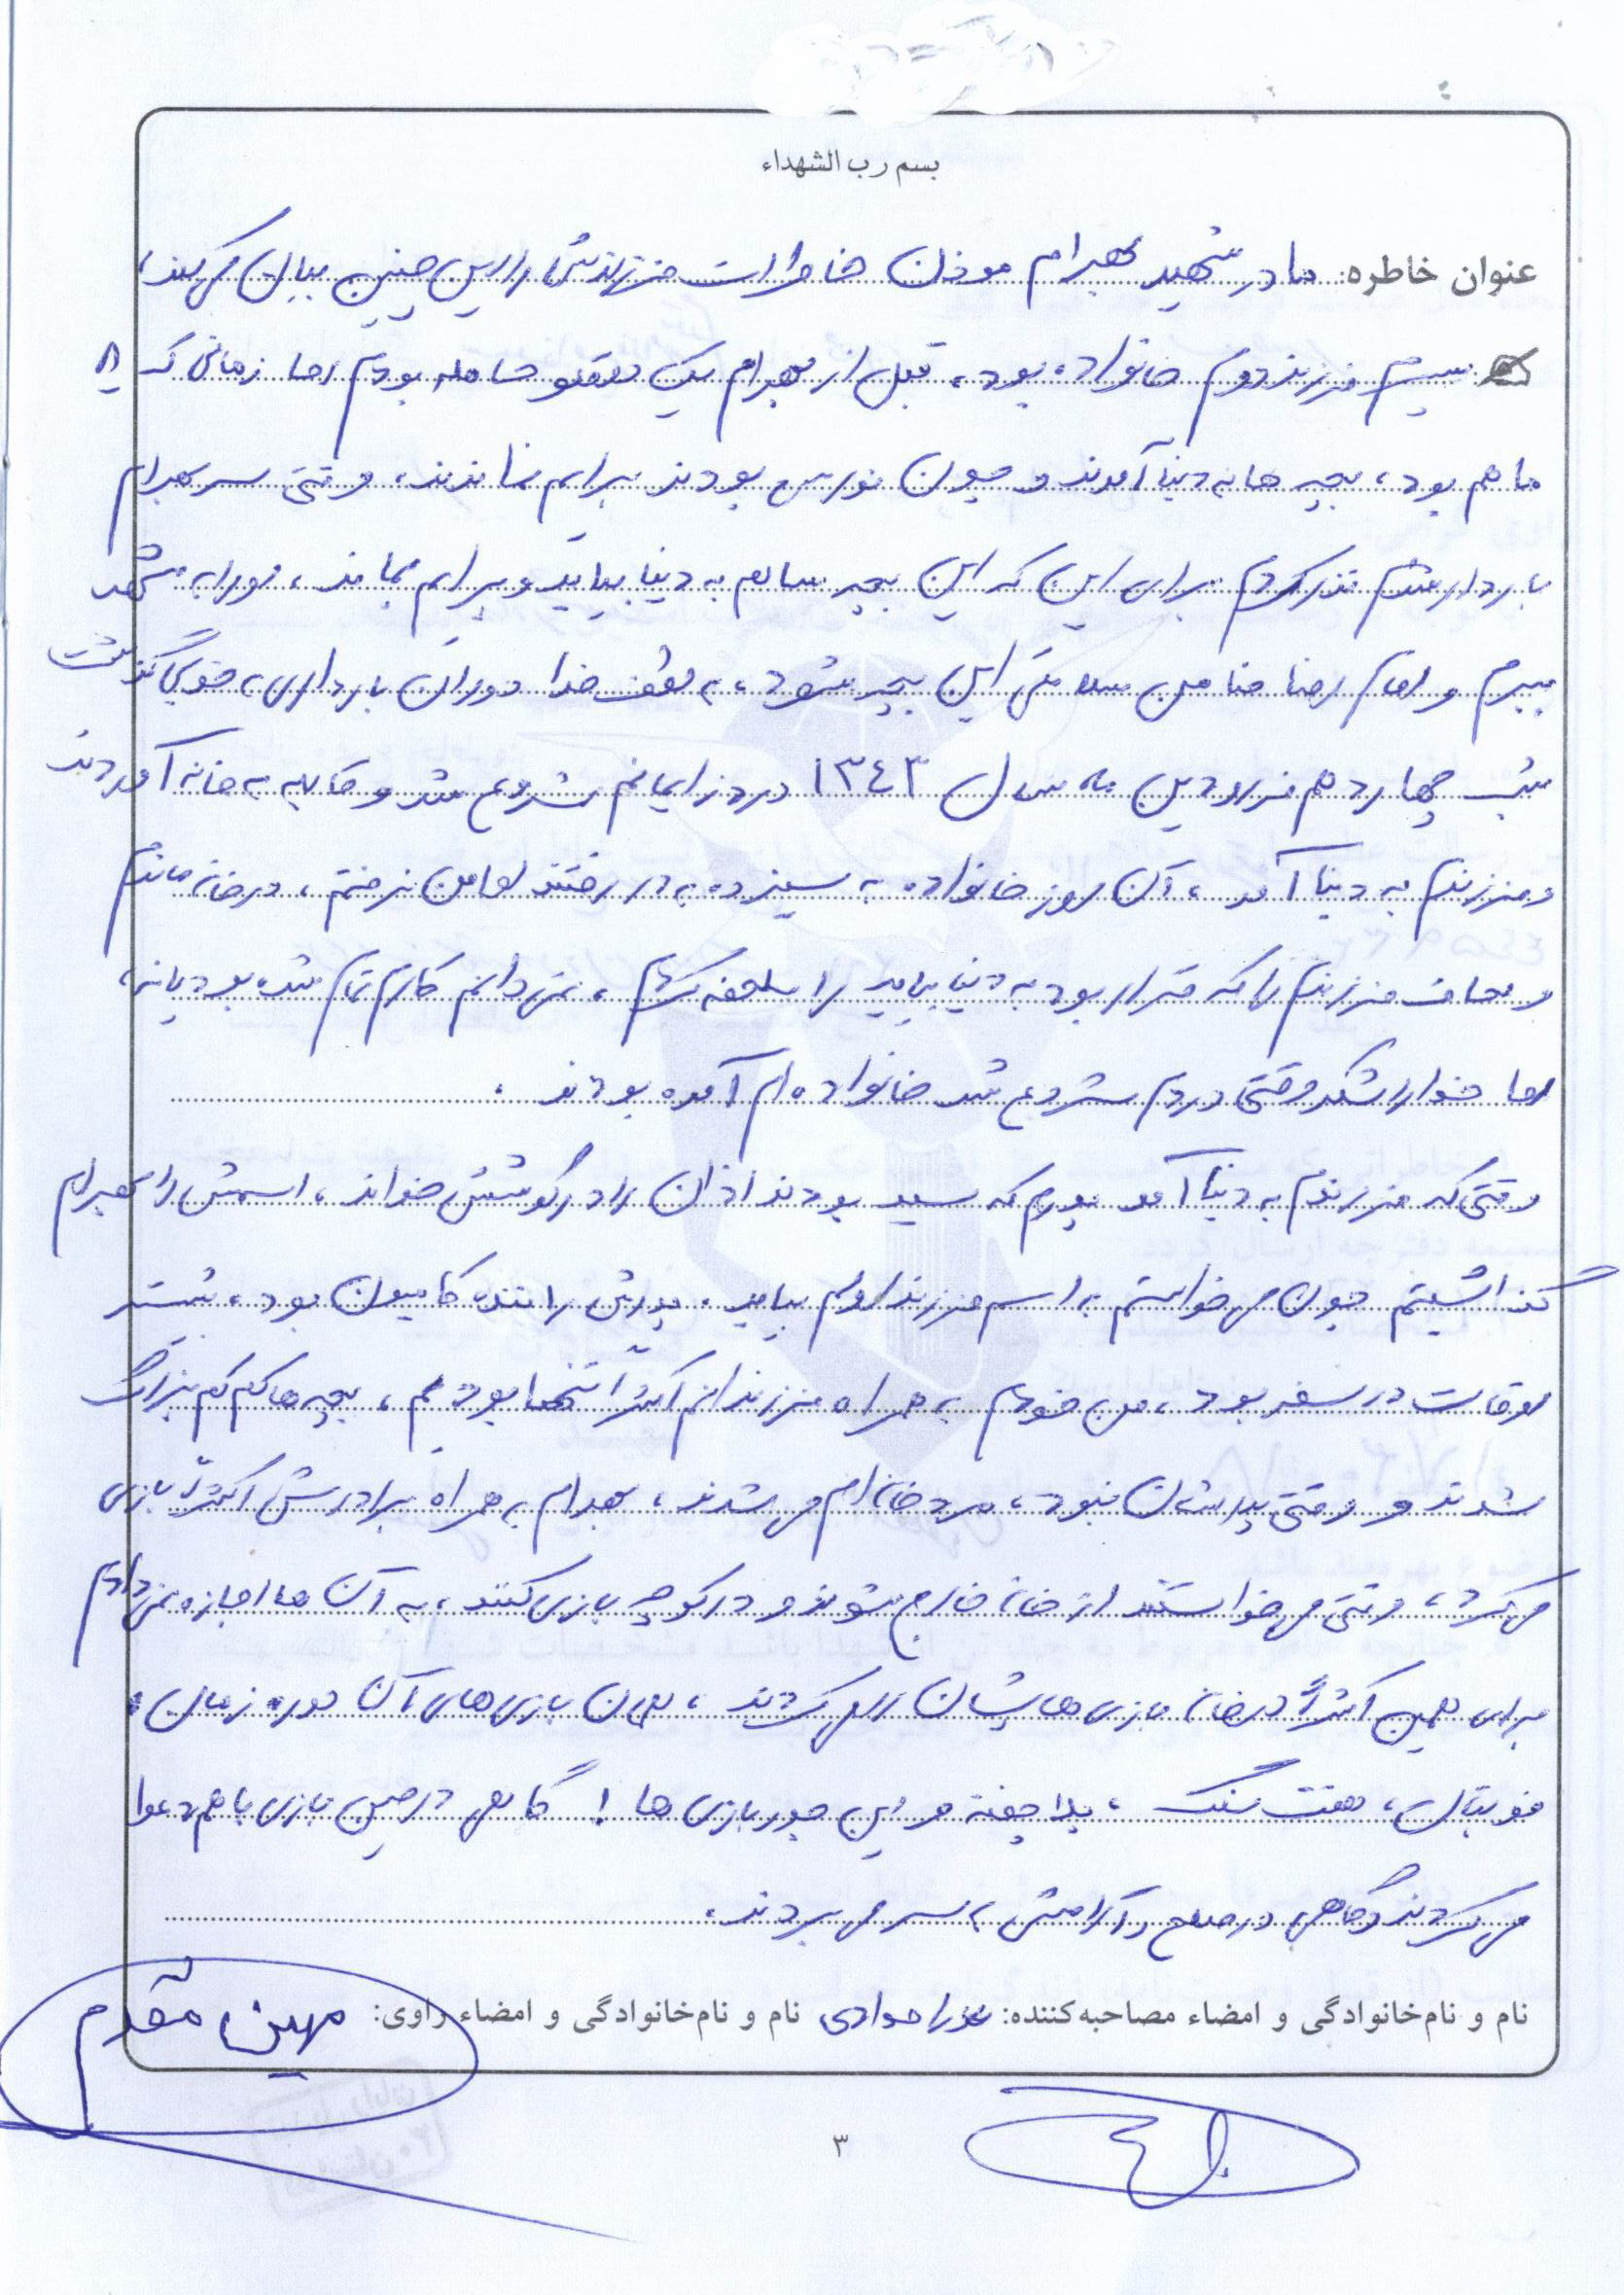 بسم رب الشهداء
عنوان خاطره: مادر شهید بهرام موذن خاطرات فرزندش را این چنین بیان می کند،
پسرم فرزند دوم خانواده بود، قبل از بهرام یک دوقلو حامله بودم اما زمانی که ۸
ماهم بود، بچه ها به دنیا آمدند و چون نورس بودند برایم نماندند، وقتی سر بهرام
باردار شدم نذر کردم برای این که این بچه سالم به دنیا بیاید و برایم بماند، او را به مشهد
ببرم و امام رضا ضامن سلامتی این بچه شود، به لطف خدا دوران بارداری به خوبی گذشت
شب چهاردهم فروردین ماه سال ۱۳٤۳ درد زایمانم شروع شد و قابله به خانه آوردند
و فرزندم به دنیا آمد، آن روز خانواده به سیزده به در رفتند اما من نرفتم، در خانه ماندم
و لحاف فرزندم را که قرار بود به دنیا بیاید را ملحفه کردم، نمی دانم کارم تمام شده بود یا نه،
اما خدا را شکر وقتی دردم شروع شد خانواده ام آمده بودند.
وقتی که فرزندم به دنیا آمد پدرم که سید بودند اذان را در گوشش خواند، اسمش را بهرام
گذاشتیم چون می خواستم به اسم فرزند اولم بیاید. پدرش راننده کامیون بود، بیشتر
اوقات در سفر بود، من خودم به همراه فرزندانم اکثراً تنها بودیم، بچه ها کم کم بزرگ
شدند و وقتی پدرشان نبود، مرد خانه ام می شدند، بهرام به همراه برادرش اکثراً بازی
می کرد، وقتی می خواستند از خانه خارج شوند و در کوچه بازی کنند، به آن ها اجازه نمی دادم
برای همین اکثراً در خانه بازی هایشان را می کردند، همان بازی های آن دوره زمان،
فوتبال، هفت سنگ، و این جور بازی ها! گاهی در حین بازی با هم دعوا
می کردند و گاهی در صلح و آرامش به سر می بردند.
نام و نام‌خانوادگی و امضاء مصاحبه‌کننده: جوادی نام و نام‌خانوادگی و امضاء راوی: مهین مقدم
۳